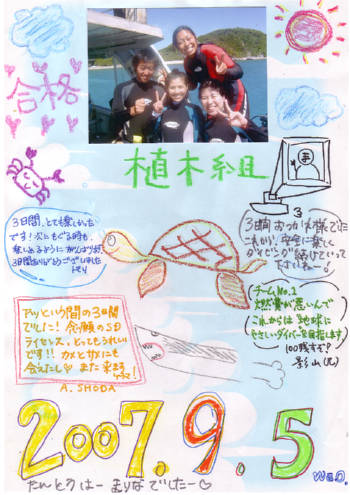 合格
植木組
3日間、とても楽しかった
です！次にもぐる時も
楽しめるようにがんばります
3日間ありがとうございました
3日間おつかれ様でした
これからも安全に楽しく
ダイビング続けていって
下さいねー！
アッという間の3日間
でした！念願のSD
ライセンス、とってもうれしい
です!! カメとサメにも
会えたし♡ また来ます
A. SHODA
チームNo.1
燃費が悪いんで
これからは地球に
やさしいダイバーを目指します
100残すぞ？
影山(兄)
2007.9.5
WED.
たんとうはー まりなでしたー♡